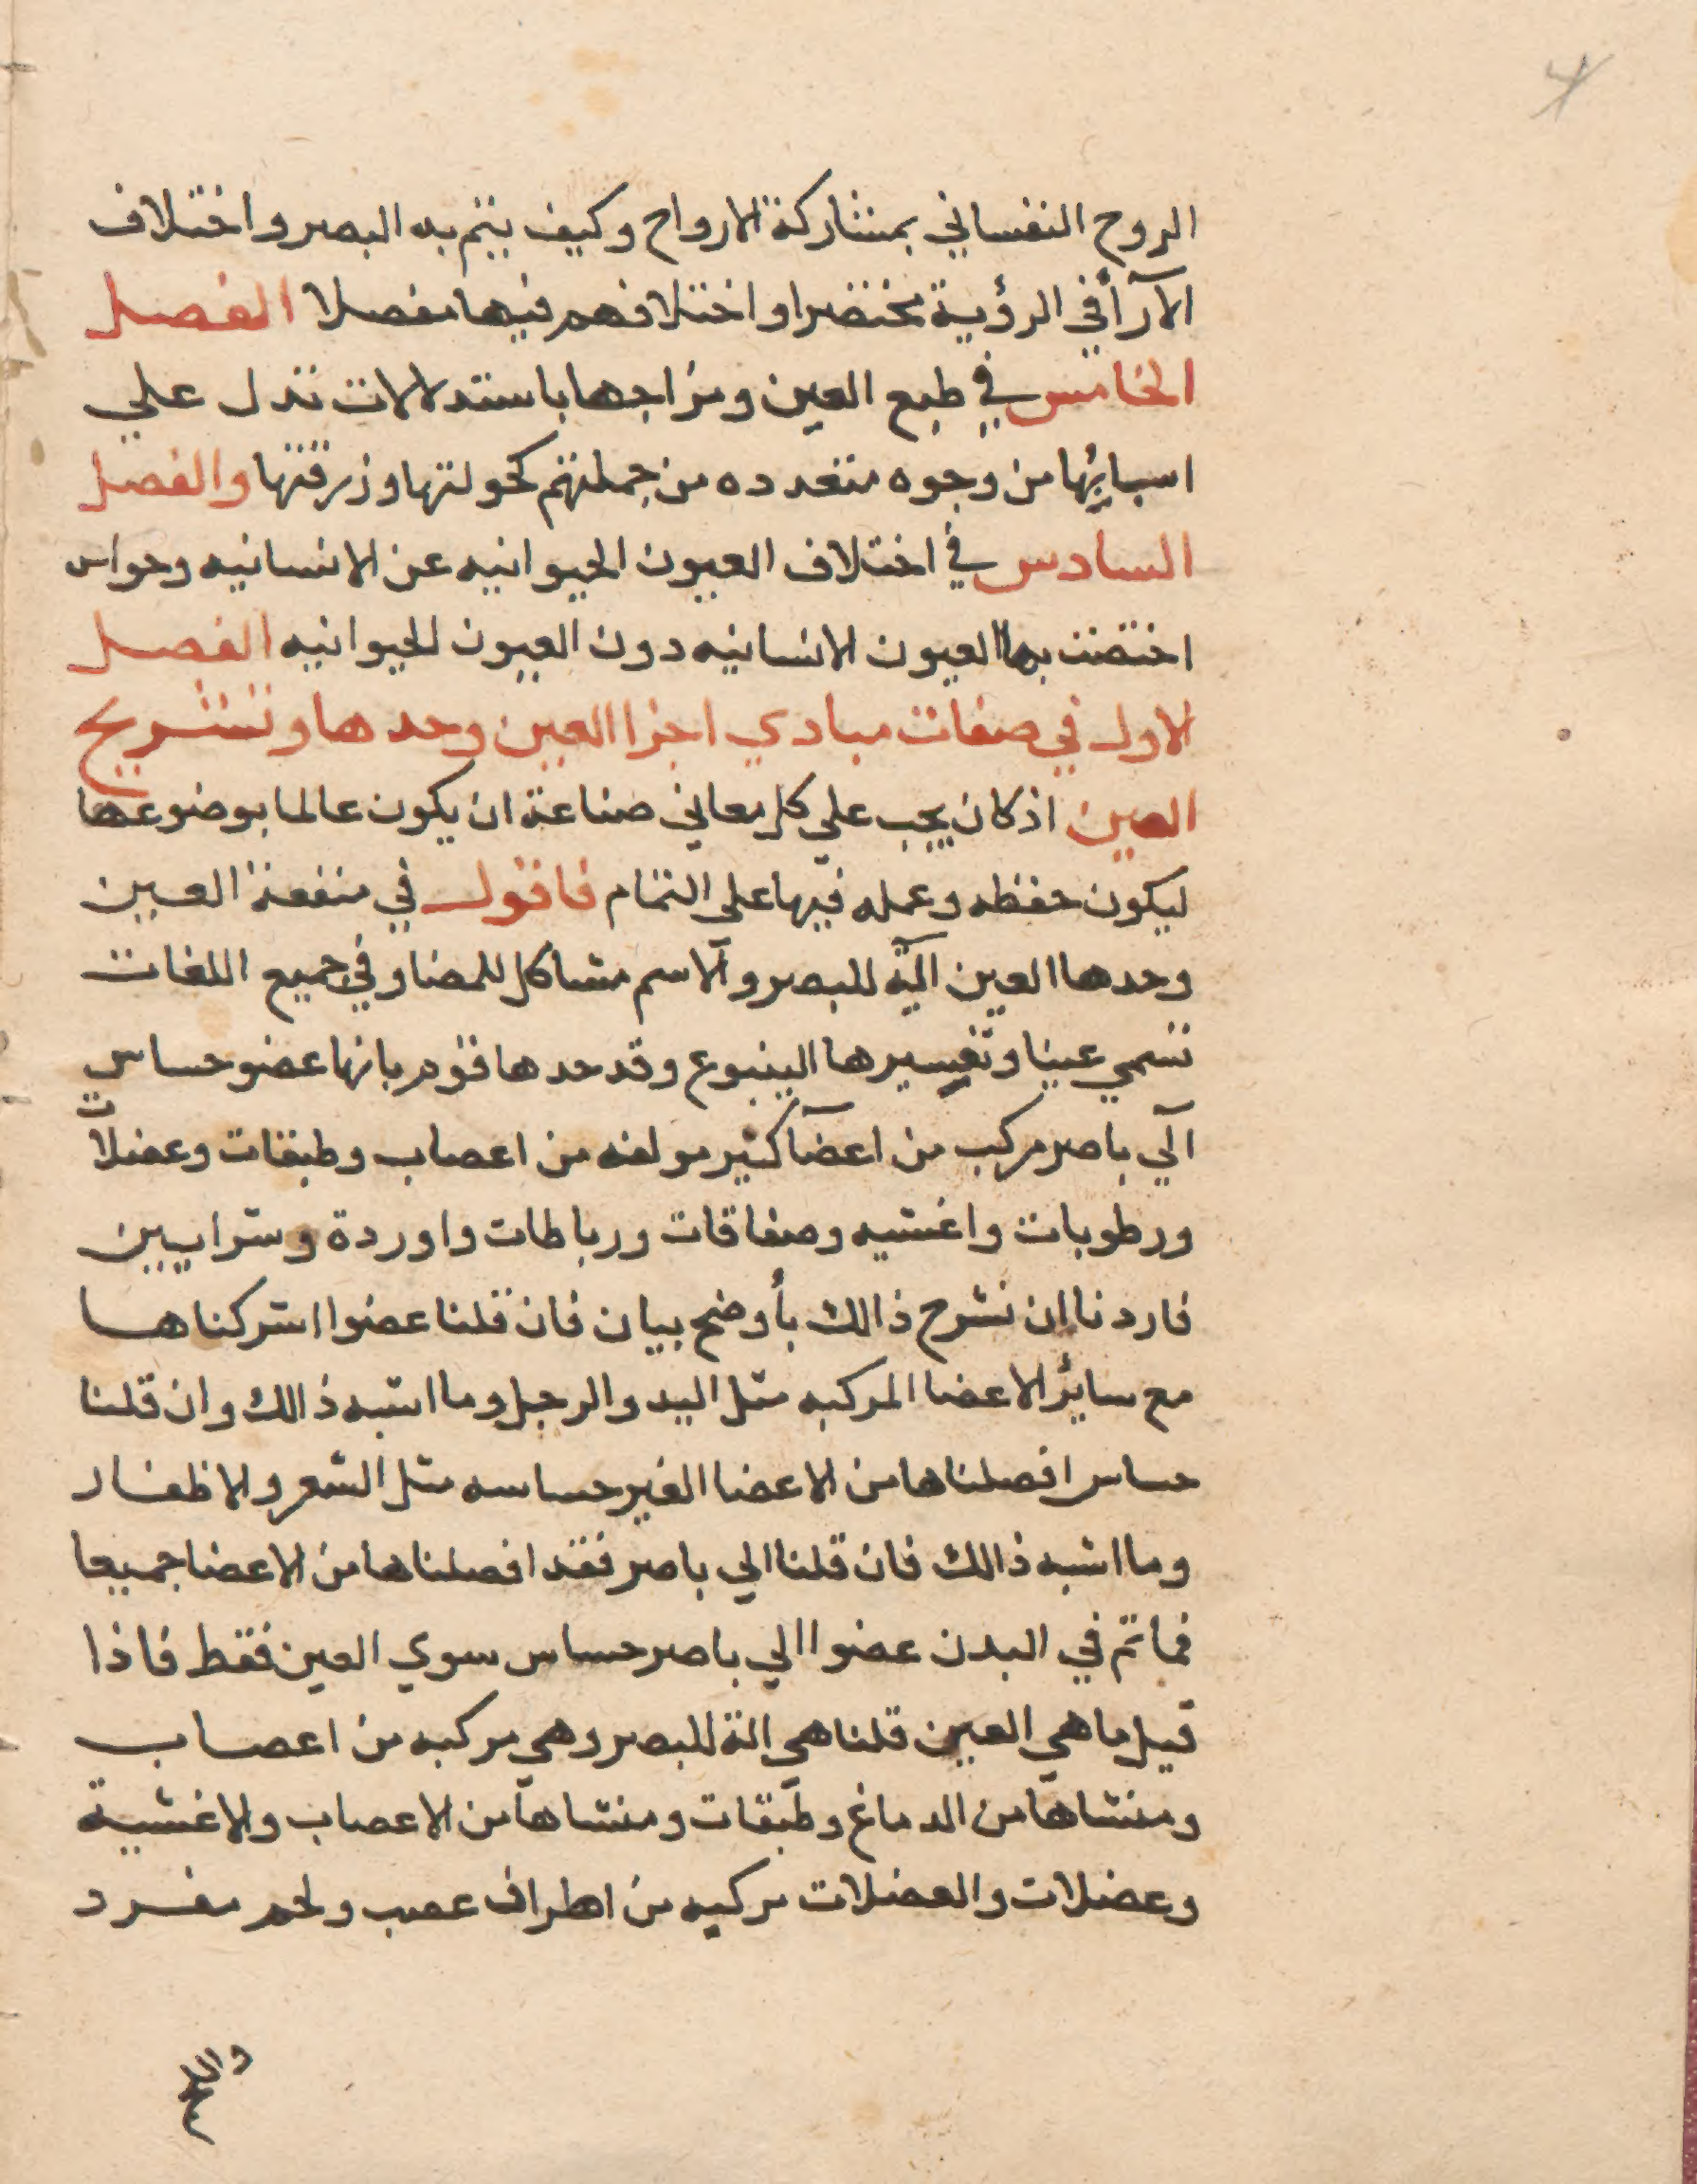 الروح النفساني بمشاركة الارواح وكيف يتم به البصر واختلاف
الآرآ في الرؤية مختصرا واختلافهم فيها مفصلا الفصل
الخامس في طبع العين ومزاجها باستدلالات تدل علي
اسبابها من وجوه متعدده من جملتهم كحولتها وزرقتها والفصل
السادس في اختلاف العيون الحيوانيه عن الانسانيه وحواس
اختصت بها العيون الانسانيه دون العيون الحيوانيه الفصل
الاول في صفات مبادي اجزا العين وحدها وتشريح
العين اذ كان يجب علي كل معاني صناعة ان يكون عالما بوضوعها
ليكون حفظه وعمله فيها علي التمام فاقول في منفعة العين
وحدها العين آلية للبصر والاسم مشاكل للمضا وفي جميع اللغات
تسمي عينا وتفسيرها الينبوع وقد حدها قوم بانها عضو حساس
آلي باصر مركب من اعضآ كثير مولفه من اعصاب وطبقات وعضلات
ورطوبات واغشيه وصفاقات ورباطات واوردة وشرايين
فاردنا ان نشرح ذالك بأوضح بيان فان قلنا عضوا اشركناها
مع سائر الاعضا المركبه مثل اليد والرجل وما اشبه ذالك وان قلنا
حساس افصلناها من الاعضا الغير حساسه مثل الشعر والاظفار
وما اشبه ذالك فان قلنا الي باصر فقد افصلناها من الاعضا جميعا
فما تم في البدن عضوا الي باصر حساس سوي العين فقط فاذا
قيل ما هي العين قلنا هي الة للبصر وهي مركبه من اعصاب
ومنشاها من الدماغ وطبقات ومنشاها من الاعصاب والاغشية
وعضلات والعضلات مركبه من اطراف عصب ولحم مفرد